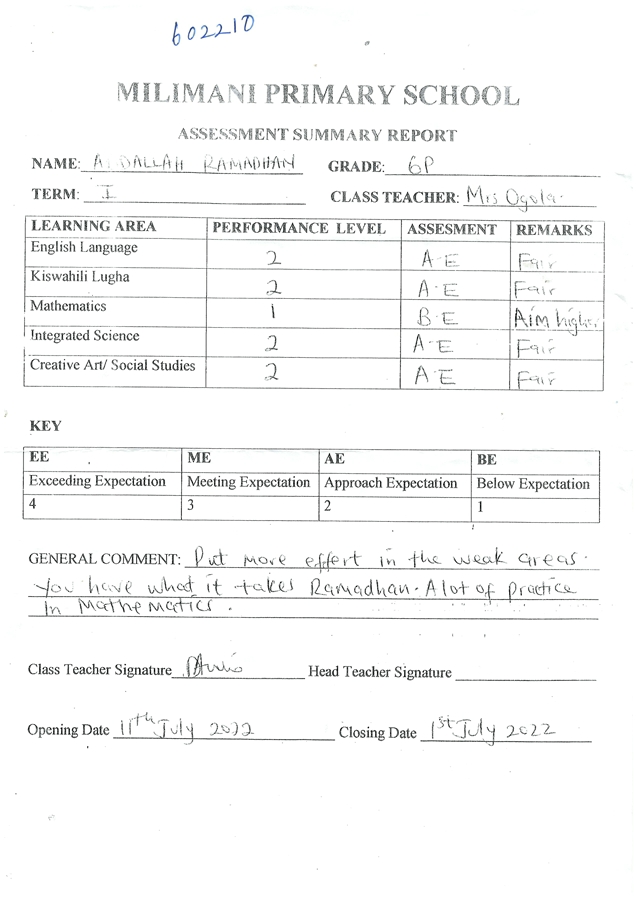 602210
MILIMANI PRIMARY SCHOOL
ASSESSMENT SUMMARY REPORT
NAME: A. DALLAH RAMADHAN GRADE: 6P
TERM: I CLASS TEACHER: Mrs Ogola
LEARNING AREA PERFORMANCE LEVEL ASSESMENT REMARKS
English Language 2 A-E Fair
Kiswahili Lugha 2 A-E Fair
Mathematics 1 B-E Aim higher
Integrated Science 2 A-E Fair
Creative Art/ Social Studies 2 A-E Fair
KEY
EE ME AE BE
Exceeding Expectation Meeting Expectation Approach Expectation Below Expectation
4 3 2 1
GENERAL COMMENT: Put more effort in the weak areas.
You have what it takes Ramadhan. A lot of practice
in Mathematics.
Class Teacher Signature Head Teacher Signature
Opening Date 11th July 2022 Closing Date 1st July 2022